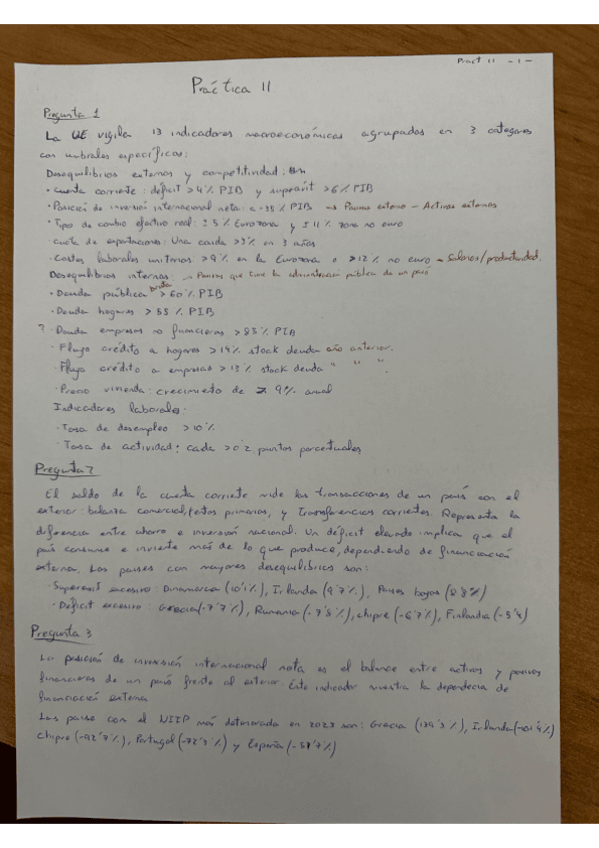 Pract 11 -1-
Práctica 11
Pregunta 1
La UE vigila 13 indicadores macroeconómicos agrupados en 3 categorías
con umbrales específicos:
Desequilibrios externos y competitividad:
· Cuenta corriente: déficit >4% PIB y superavit >6% PIB
· Posición de inversión internacional neta: <-35% PIB → Pasivos externo - Activos externos
· Tipo de cambio efectivo real: ±5% Eurozona y ±11% zona no euro
· cuota de exportaciones: Una caída >3% en 3 años
· Costes laborales unitarios >9% en la Eurozona o >12% no euro → Salarios/productividad.
Desequilibrios internos: → Pasivos que tiene la administración pública de un país
· Deuda pública bruta >60% PIB
· Deuda hogares >55% PIB
? · Deuda empresas no financieras >85% PIB
· Flujo crédito a hogares >14% stock deuda año anterior.
· Flujo crédito a empresas >13% stock deuda " " ".
· Precio vivienda: crecimiento de > 9% anual
Indicadores laborales:
· Tasa de desempleo >10%
· Tasa de actividad: caida >0'2 puntos porcentuales
Pregunta 2
El saldo de la cuenta corriente mide las transacciones de un país con el
exterior: balanza comercial, rentas primarias, y transferencias corrientes. Representa la
diferencia entre ahorro e inversión nacional. Un déficit elevado implica que el
país consume e invierte más de lo que produce, dependiendo de financiación
externa. Los países con mayores desequilibrios son:
· Superavit excesivo: Dinamarca (10'1%), Irlanda (9'7%), Países bajos (8'8%)
· Déficit excesivo: Grecia (-7'7%), Rumania (-7'8%), chipre (-6'7%), Finlandia (-5'4)
Pregunta 3
La posición de inversión internacional neta es el balance entre activos y pasivos
financieros de un país frente al exterior. Este indicador muestra la dependecia de
financiación externa
Los países con el NIIP más deteriorada en 2023 son: Grecia (139'3%), Irlanda (-101'4%)
chipre (-92'7%), Portugal (-72'3%) y España (-57'7%)